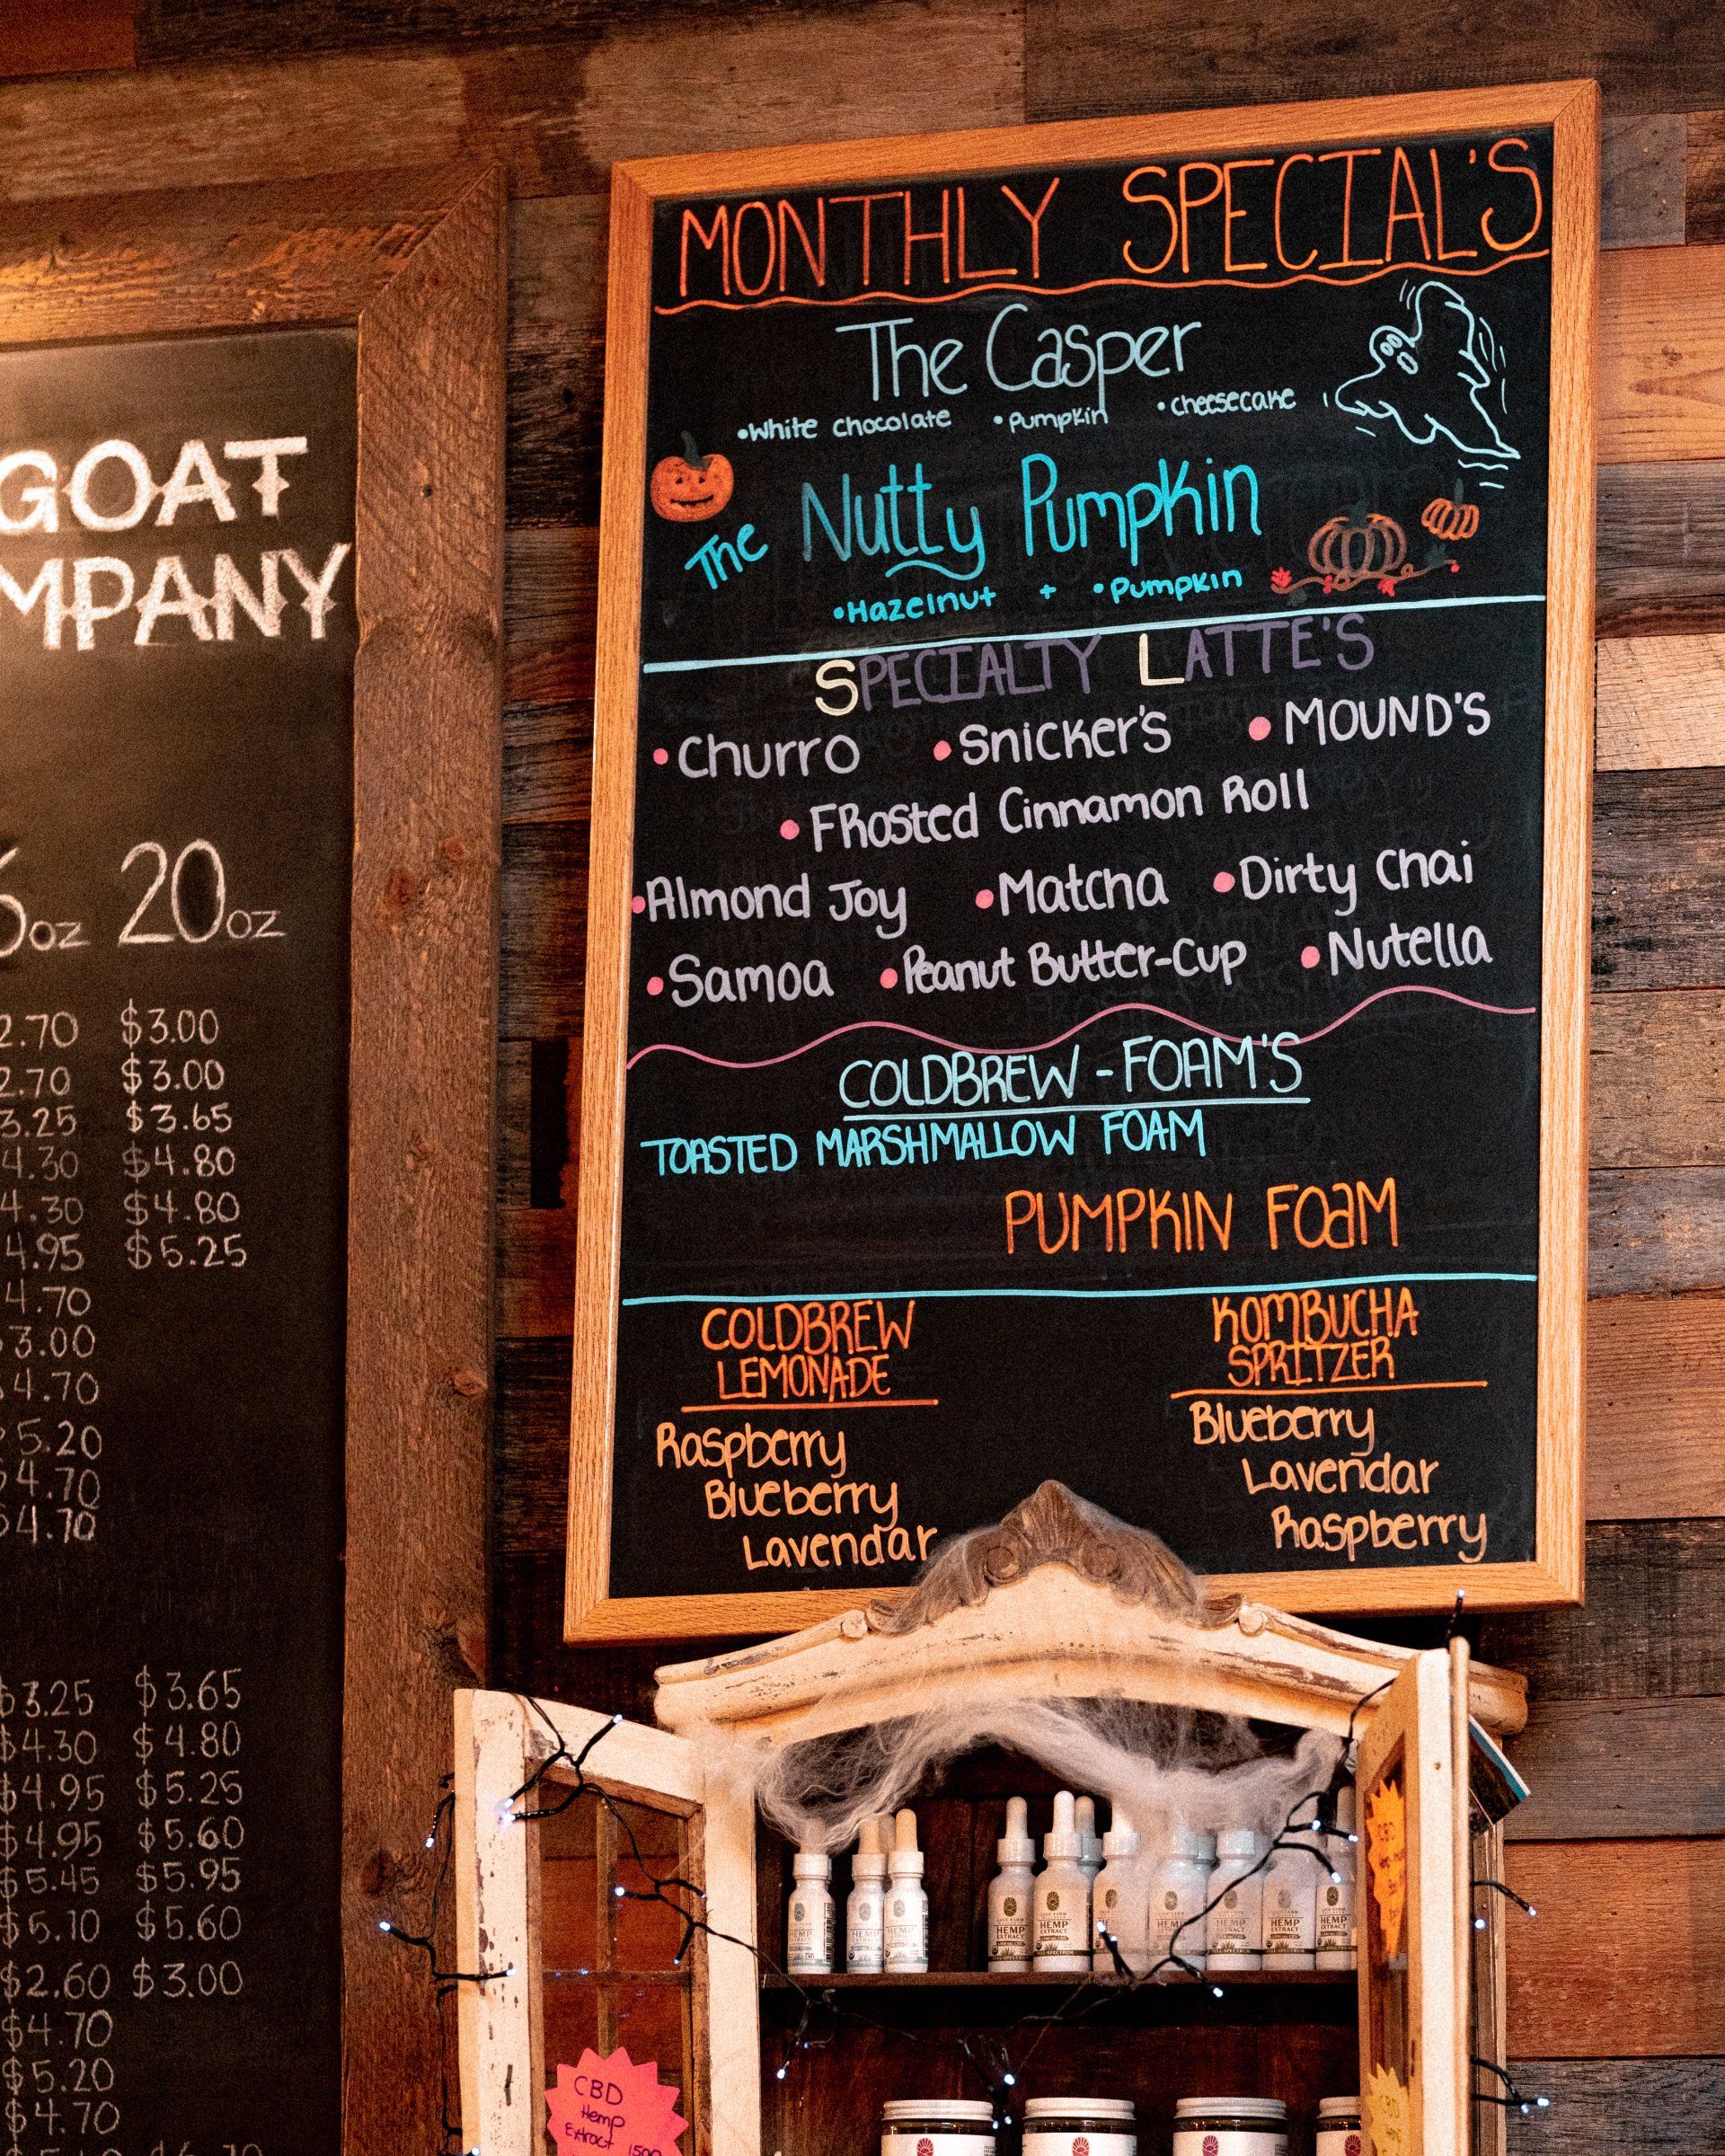 GOAT
MPANY
oz 20oz
2.70 $3.00
2.70 $3.00
3.25 $3.65
4.30 $4.80
4.30 $4.80
4.95 $5.25
4.70
3.00
4.70
5.20
4.70
4.70
$3.25 $3.65
$4.30 $4.80
$4.95 $5.25
$4.95 $5.60
$5.45 $5.95
$5.10 $5.60
$2.60 $3.00
$4.70
$5.20
$4.70
MONTHLY SPECIAL'S
The Casper
•White chocolate •Pumpkin •cheesecake
The Nutty Pumpkin
•Hazelnut + •Pumpkin
SPECIALTY LATTE'S
•Churro •Snicker's •MOUND'S
•FRosted Cinnamon Roll
•Almond Joy •Matcha •Dirty Chai
•Samoa •Peanut Butter-Cup •Nutella
COLDBREW-FOAM'S
TOASTED MARSHMALLOW FOAM
PUMPKIN FOaM
COLDBREW
LEMONADE
Raspberry
Blueberry
Lavendar
KOMBUCHA
SPRITZER
Blueberry
Lavendar
Raspberry
HEMP
EXTRACT
HEMP
EXTRACT
HEMP
EXTRACT
CBD
Hemp
Extract 1500